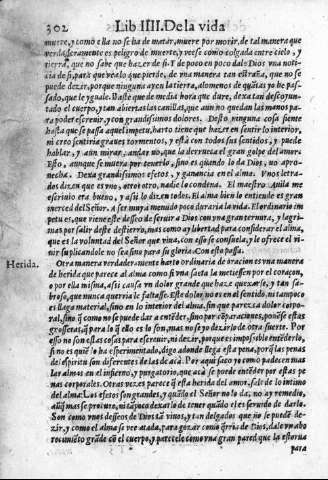 302 Lib IIII. De la vida
muere, y como ella no se ha de matar, muere por morir, de tal manera que
verdaderamente es peligro de muerte, y veese como colgada entre cielo, y
tierra, que no sabe que hazer de si. Y de poco en poco dale Dios vna noti
cia de si, para que vea lo que pierde, de vna manera tan estraña, que no se
puede dezir, porque ninguna ay en la tierra, alomenos de quātas yo he pas
sado, que le yguale. Baste que de media hora que dure, dexa tan descoyun
tado el cuerpo, y tan abiertas las canillas, que aun no quedan las manos pa
ra poder escreuir, y con grandissimos dolores. Desto ninguna cosa siente
hasta que se passa aquel impetu, harto tiene que hazer en sentir lo interior,
ni creo sentiria graues tormentos, y està con todos sus sentidos, y puede
hablar, y aun mirar, andar no, que la derrueca el gran golpe del amor.
Esto, aunque se muera por tenerlo, sino es quando lo da Dios, no apro-
uecha. Dexa grandissimos efetos, y ganancia en el alma. Vnos letra-
dos dizen que es vno, otro otro, nadie lo condena. El maestro Auila me
escriuio era bueno, y assi lo dizen todos. El alma bien lo entiende es gran
merced del Señor. A ser muy a menudo poco duraria la vida. El ordinario im
petu es, que viene este desseo de seruir a Dios con vna gran ternura, y lagri-
mas por salir deste destierro, mas como ay libertad para considerar el alma,
que es la voluntad del Señor que viua, con esso se consuela, y le ofrece el vi-
uir suplicandole no sea sino para su gloria. Con esto passa.
Herida. Otra manera verdaderamente harto ordinaria de oracion es vna manera
de herida que parece al alma como si vna saeta la metiessen por el coraçon,
o por ella misma, assi causa vn dolor grande que haze quexarse, y tan sa-
broso, que nunca querria le faltasse. Este dolor no es en el sentido, ni tampoco
es llaga material, sino en lo interior del alma, sin que parezca dolor corpo-
ral, sino q̃ como no se puede dar a entēder, sino por cōparaciones, ponēse estas
grosseras, q̃ para lo q̃ ello es lo son, mas no se yo dezirlo de otra suerte. Por
esso no son estas cosas para escreuir, ni dezir, porque es impossible entēderlo,
sino es quiē lo ha experimentado, digo adonde llega esta pena, porq̃ las penas
del espiritu son diferentes de las de acà. Por aqui saco yo como padecen mas
las almas en el infierno, y purgatorio, que acà se puede entēder por estas pe
nas corporales. Otras vezes parece q̃ esta herida del amor, sale de lo intimo
del alma. Los efetos son grandes, y quādo el Señor no lo da, no ay remedio,
aūq̃ mas se procure, ni tāpoco dexarlo de tener quādo el es seruido de darlo.
Son como vnos desseos de Dios tā viuos, y tan delgados que no se puedē de-
zir, y como el alma se vee atada, para gozar como q̃rria de Dios, dale vn abo
rrecimiēto grāde cō el cuerpo, y parecele como vna gran pared que la estorua
para